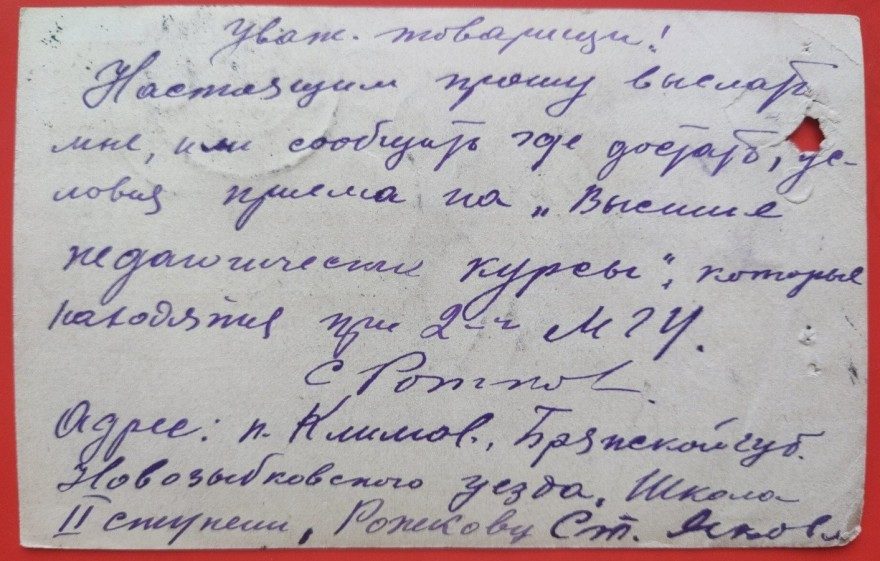 Уваж. товарищи!
Настоящим прошу выслать
мне, или сообщить где достать, ус-
ловия приема на „Высшие
педагогические курсы", которые
находятся при 2-м МГУ.
С
Адрес: п. Климов., Брянской губ.
Новозыбковского уезда, Школа
II ступени, Рожкову Ст. Яковл